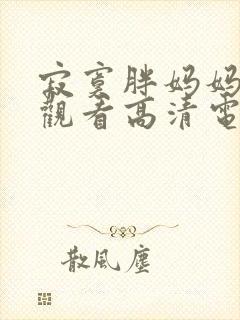 寂寞胖妈妈
觀看高清電
散風塵